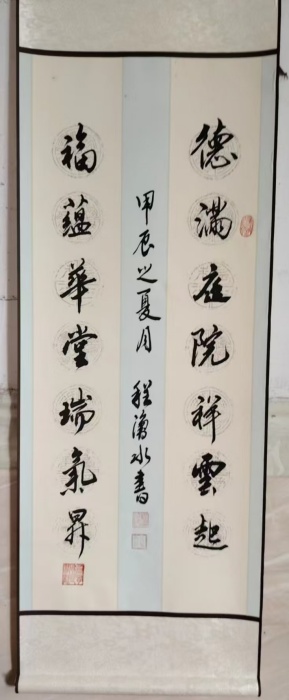 德滿庭院祥雲起
福蘊華堂瑞氣昇
甲辰之夏月 程湧水書